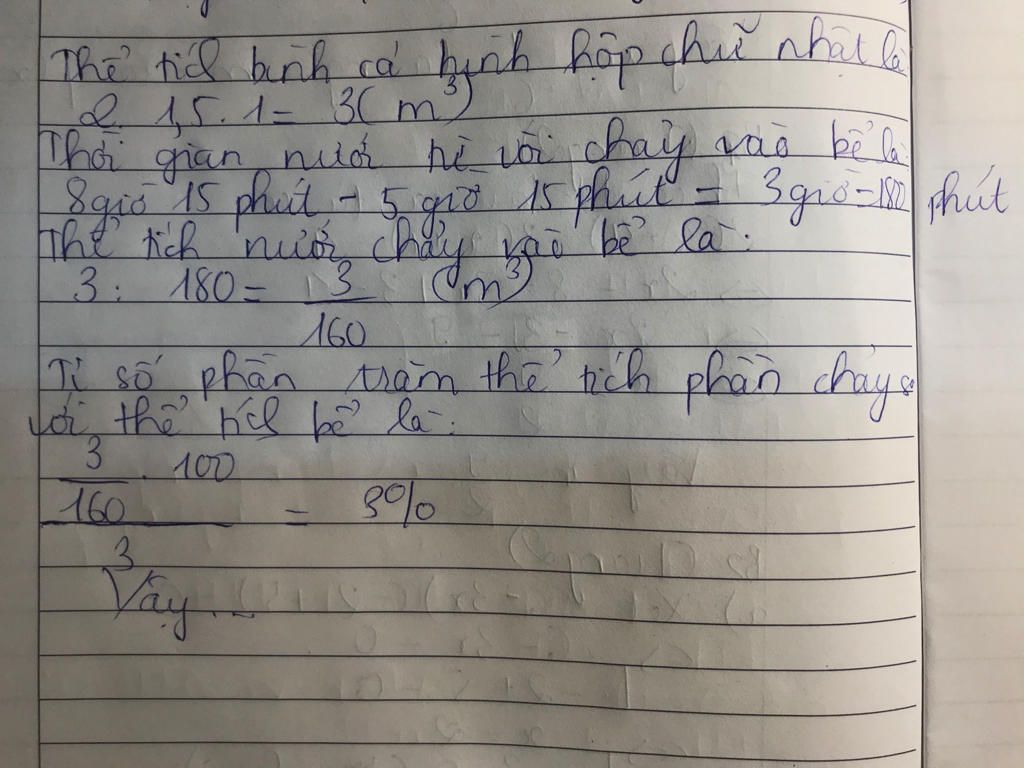 Thể tích bình cá hình hộp chữ nhật là
2. 1,5. 1 = 3(m³)
Thời gian nước từ vòi chảy vào bể là:
8 giờ 15 phút - 5 giờ 15 phút = 3 giờ = 180 phút
Thể tích nước chảy vào bể là:
3 : 180 = 3/160 (m³)
Tỉ số phần trăm thể tích phần chảy so
với thể tích bể là:
3/160 . 100
/ 3 = 3%
Vậy ...